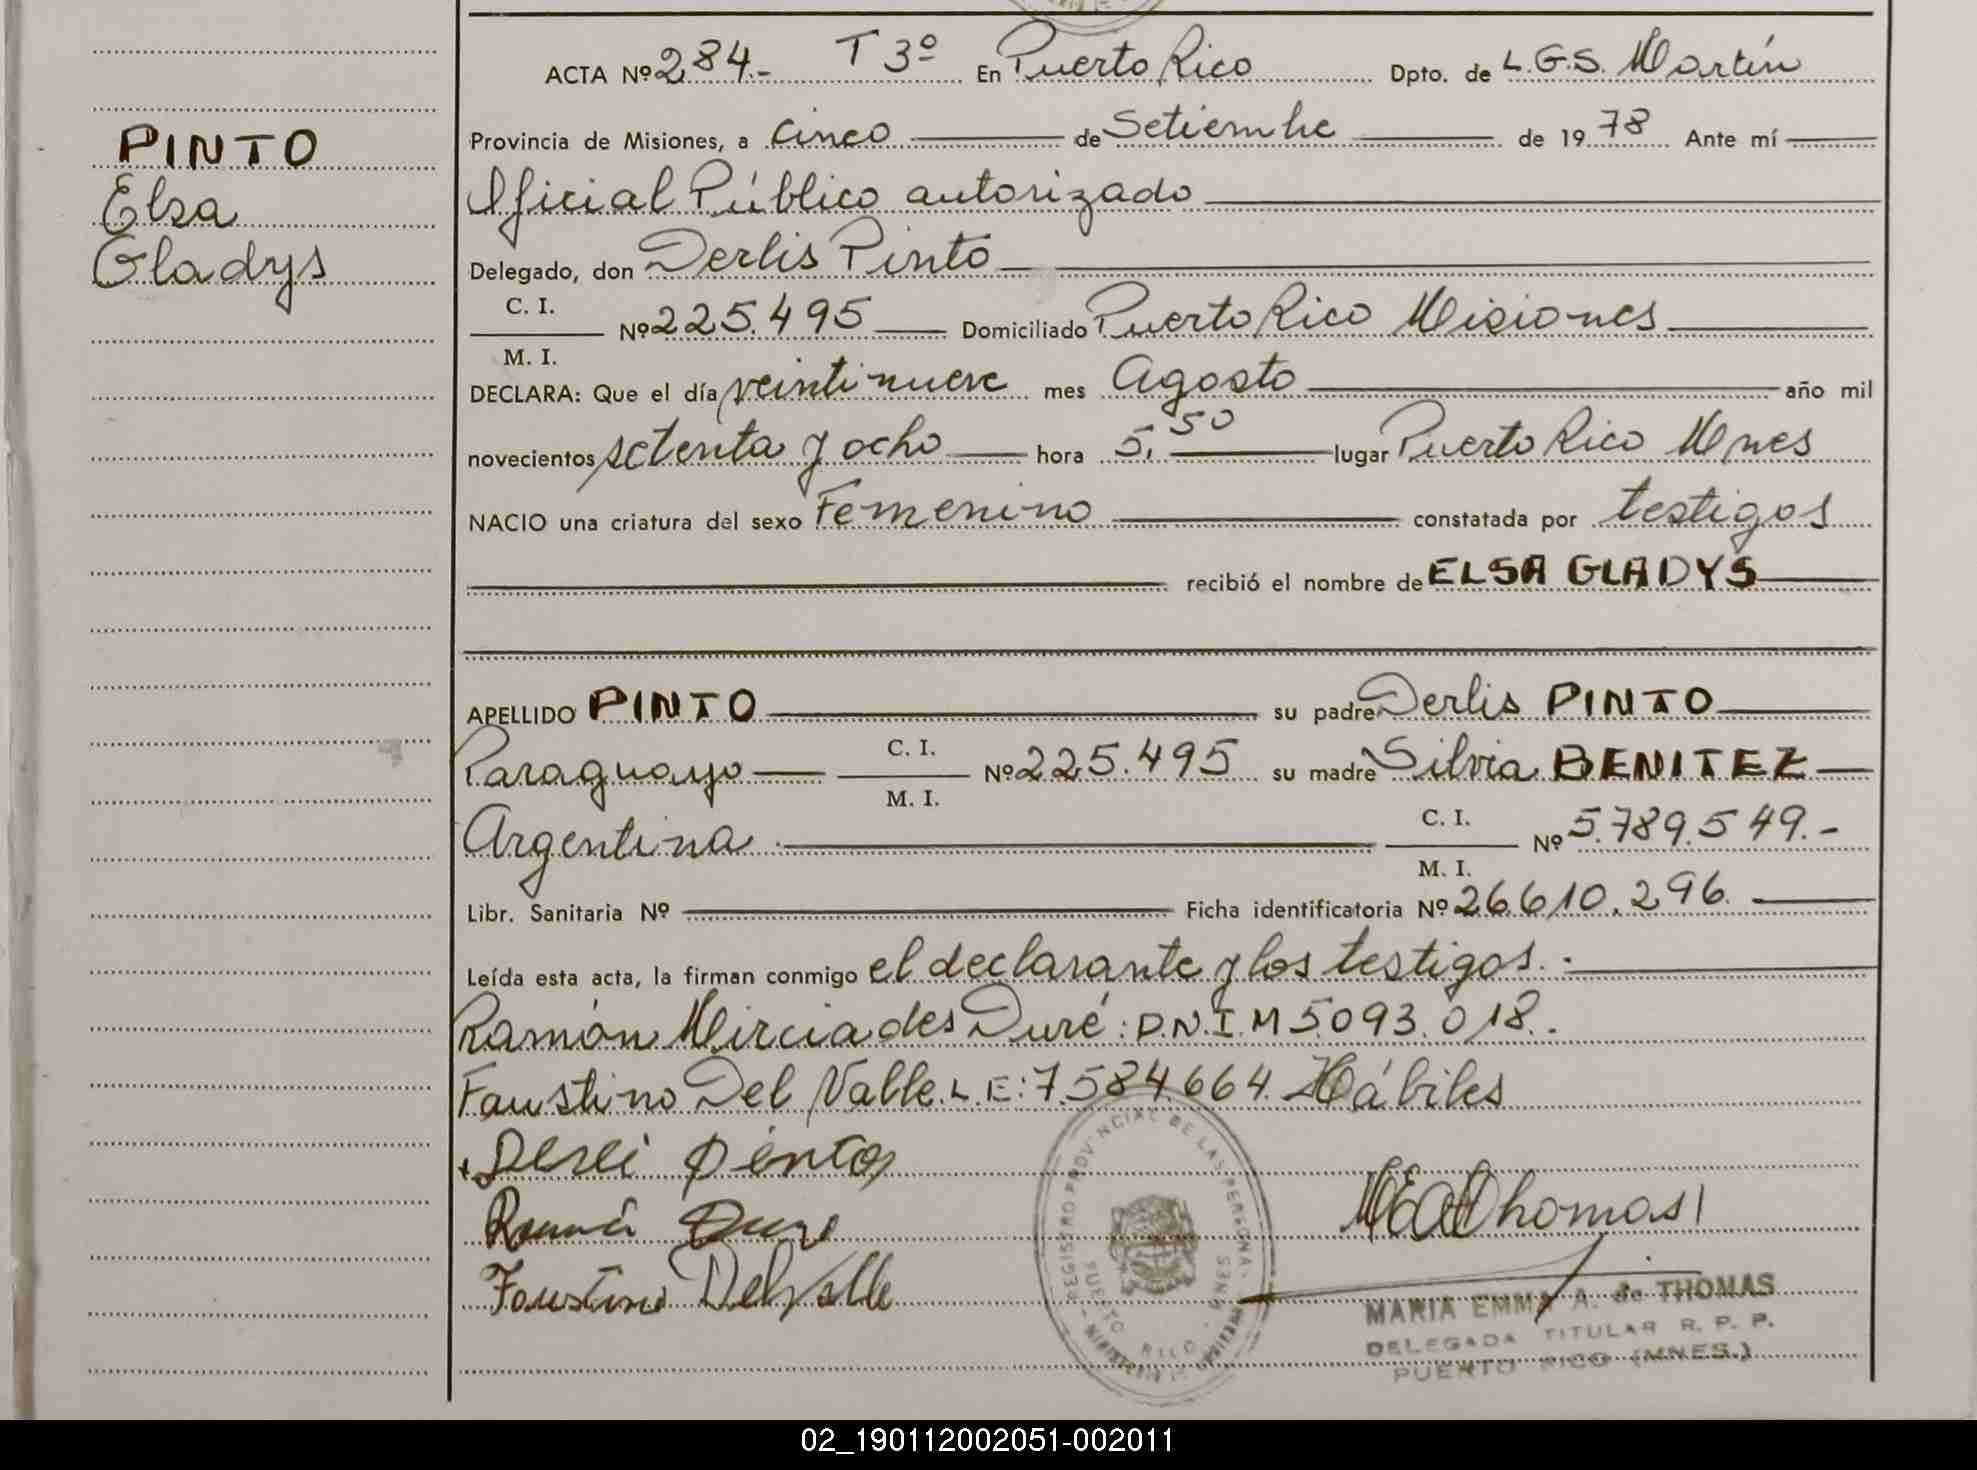 PINTO
Elsa
Gladys
ACTA Nº 284.- T 3º En Puerto Rico Dpto. de L.G.S. Martín
Provincia de Misiones, a cinco de Setiembre de 1978 Ante mí
Oficial Público autorizado
Delegado, don Derlis Pinto
C. I.
Nº 225.495 Domiciliado Puerto Rico Misiones
M. I.
DECLARA: Que el día veintinueve mes Agosto año mil
novecientos setenta y ocho hora 5,50 lugar Puerto Rico Mnes
NACIO una criatura del sexo Femenino constatada por testigos
recibió el nombre de ELSA GLADYS
APELLIDO PINTO su padre Derlis PINTO
Paraguayo C. I. Nº 225.495 su madre Silvia BENITEZ
M. I.
Argentina C. I. Nº 5.789.549.-
M. I.
Libr. Sanitaria Nº Ficha identificatoria Nº 26.610.296.
Leída esta acta, la firman conmigo el declarante y los testigos.
Ramón Mirciades Duré: D.N.I. M 5.093.018.
Faustino Del Valle. L.E: 7.584.664. Hábiles
Ramón Dure
Faustino Delvalle
Thomas
REGISTRO PROVINCIAL DE LAS PERSONAS
PUERTO RICO - MNES
MARIA EMMA A. de THOMAS
DELEGADA TITULAR R. P. P.
PUERTO RICO (MNES.)
02_190112002051-002011